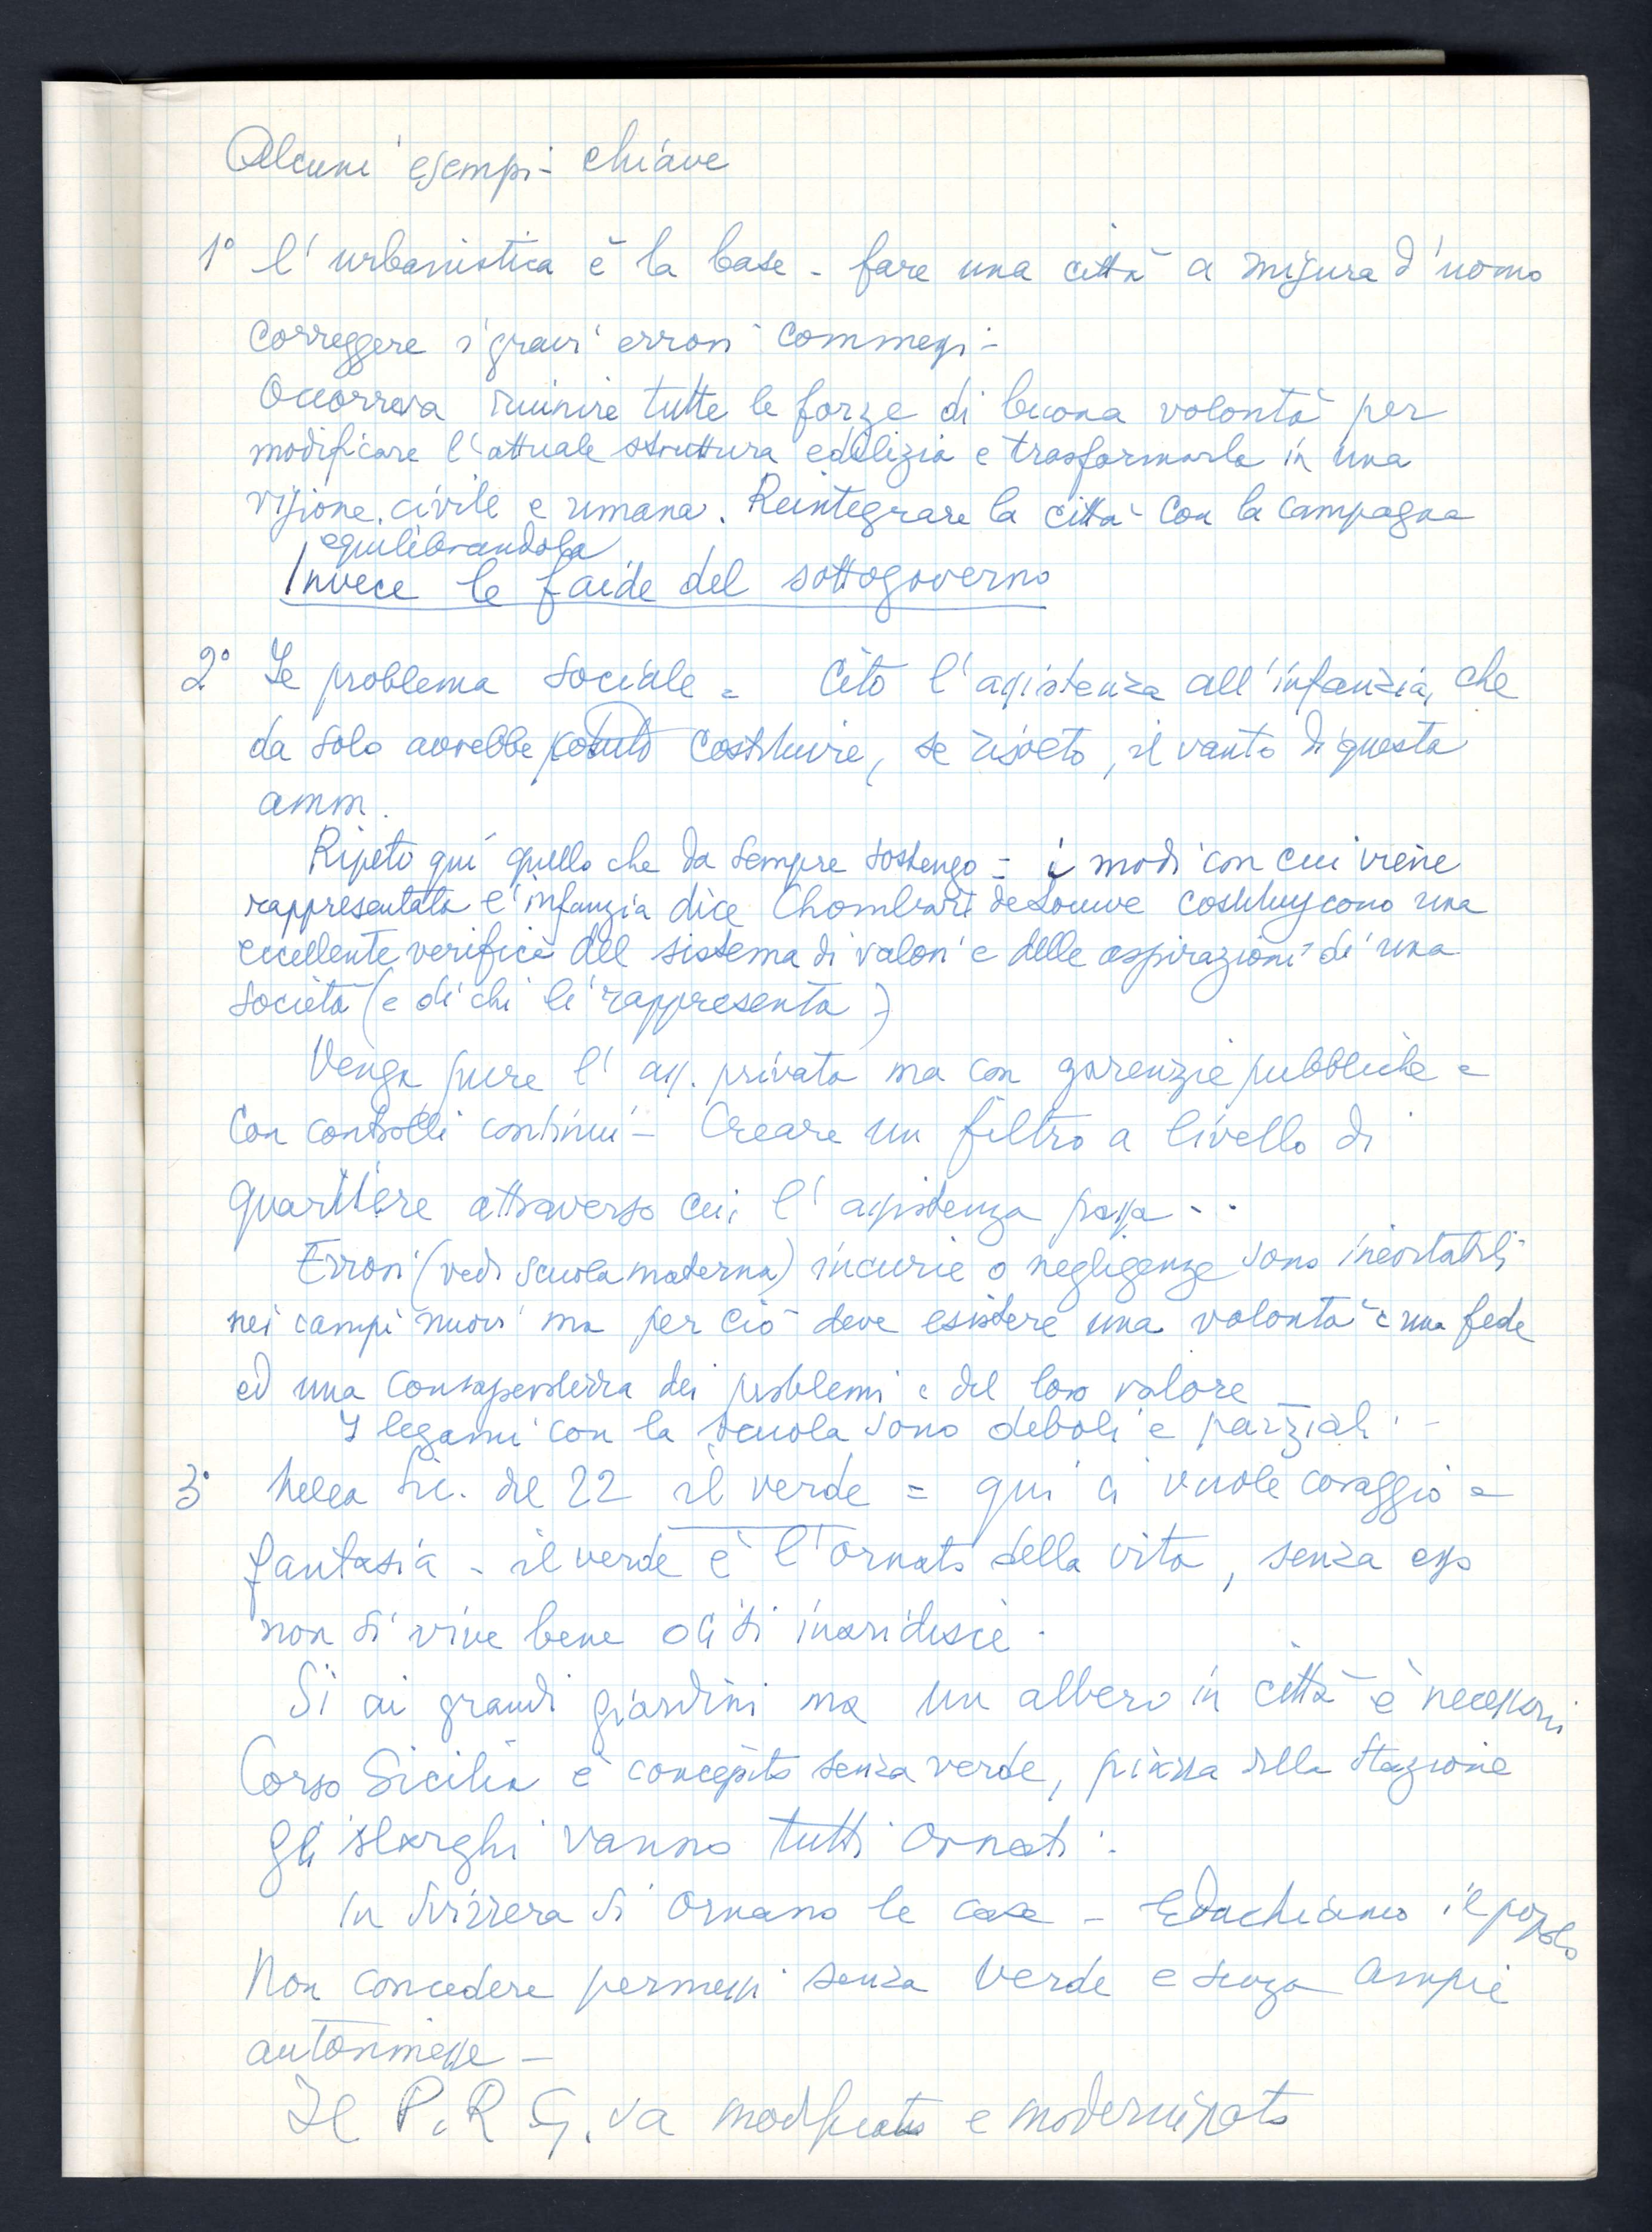 Alcuni esempi - chiave
1° l'urbanistica è la base - fare una città a misura d'uomo
correggere i gravi errori commessi -
Occorreva riunire tutte le forze di buona volontà per
modificare l'attuale struttura edilizia e trasformarla in una
visione, civile e umana. Reintegrare la città con la campagna
equilibrandola
Invece le faide del sottogoverno
2° Il problema sociale = Cito l'assistenza all'infanzia, che
da solo avrebbe potuto costituire, se risolto, il vanto di questa
amm.
Ripeto qui quello che da sempre sostengo = i modi con cui viene
rappresentata l'infanzia dice Chombart de Lauwe costituiscono una
eccellente verifica del sistema di valori e delle aspirazioni di una
società (e di chi li rappresenta)
Venga pure l'ass. privata ma con garenzie pubbliche e
con controlli continui - Creare un filtro a livello di
quartiere attraverso cui l'assistenza passa ..
Errori (vedi scuola materna) incurie o negligenze sono inevitabili
nei campi nuovi ma per ciò deve esistere una volontà e una fede
ed una consapevolezza dei problemi e del loro valore
I legami con la scuola sono deboli e parziali -
3° Nella del 22 il verde = qui ci vuole coraggio e
fantasia - il verde è l'ornato della vita, senza esso
non si vive bene ci si inaridisce.
Si ai grandi giardini ma un albero in città è necessario
Corso Sicilia è concepito senza verde, piazza della Stazione
gli slarghi vanno tutti ornati.
In Svizzera si ornano le case - Educhiamo il popolo
Non concedere permessi senza verde e senza ampie
autorimesse -
Il P.R.G. va modificato e modernizzato